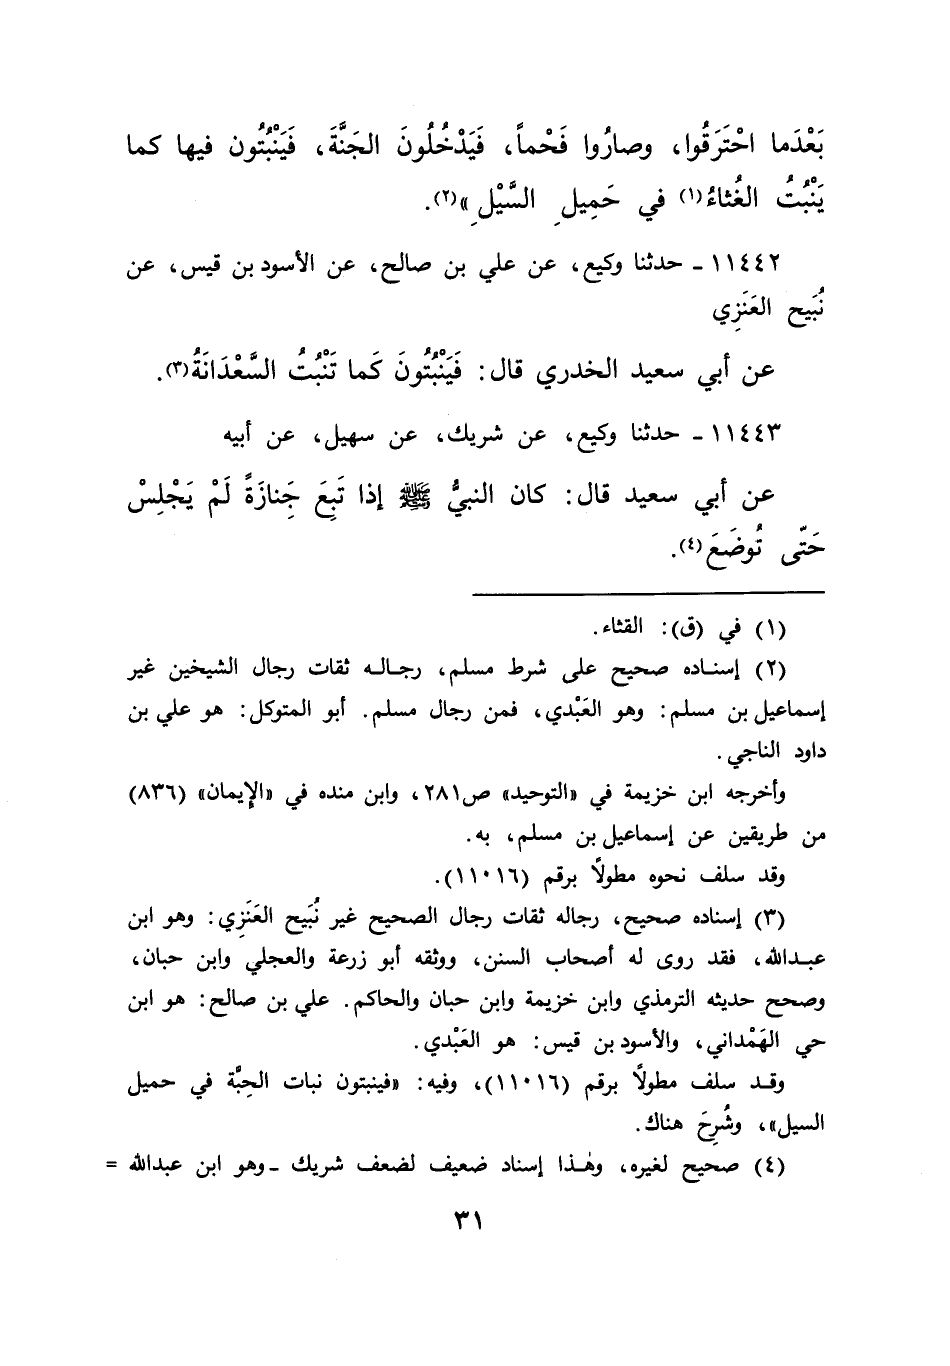 بَعْدَما احْتَرَقُوا، وصارُوا فَحْماً، فَيَدْخُلُونَ الجَنَّةَ، فَيَنْبُتُون فيها كما
يَنْبُتُ الغُثاءُ(١) في حَمِيلِ السَّيْلِ»(٢).
١١٤٤٢ - حدثنا وكيع، عن علي بن صالح، عن الأسود بن قيس، عن
نُبَيح العَنَزِي
عن أبي سعيد الخدري قال: فَيَنْبُتُونَ كَما تَنْبُتُ السَّعْدَانَةُ(٣).
١١٤٤٣ - حدثنا وكيع، عن شريك، عن سهيل، عن أبيه
عن أبي سعيد قال: كان النبيُّ ﷺ إذا تَبِعَ جَنازَةً لَمْ يَجْلِسْ
حَتّى تُوضَعَ(٤).
(١) في (ق): القثاء.
(٢) إسناده صحيح على شرط مسلم، رجاله ثقات رجال الشيخين غير
إسماعيل بن مسلم: وهو العَبْدي، فمن رجال مسلم. أبو المتوكل: هو علي بن
داود الناجي.
وأخرجه ابن خزيمة في «التوحيد» ص٢٨١، وابن منده في «الإيمان» (٨٣٦)
من طريقين عن إسماعيل بن مسلم، به.
وقد سلف نحوه مطولاً برقم (١١٠١٦).
(٣) إسناده صحيح، رجاله ثقات رجال الصحيح غير نُبَيح العَنَزِي: وهو ابن
عبدالله، فقد روى له أصحاب السنن، ووثقه أبو زرعة والعجلي وابن حبان،
وصحح حديثه الترمذي وابن خزيمة وابن حبان والحاكم. علي بن صالح: هو ابن
حي الهَمْداني، والأسود بن قيس: هو العَبْدي.
وقد سلف مطولاً برقم (١١٠١٦)، وفيه: «فينبتون نبات الحِبَّة في حميل
السيل»، وشُرِحَ هناك.
(٤) صحيح لغيره، وهٰذا إسناد ضعيف لضعف شريك -وهو ابن عبدالله =
٣١